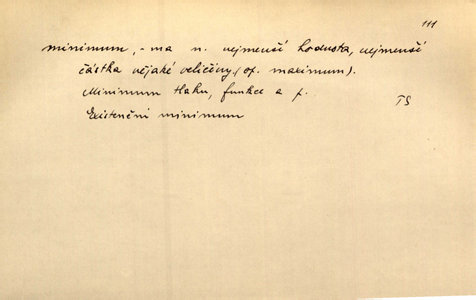 111
minimum, -ma n. nejmenší hodnota, nejmenší
částka nějaké veličiny, (op. maximum).
Minimum tlaku, funkce a p.
TS
Existenční minimum